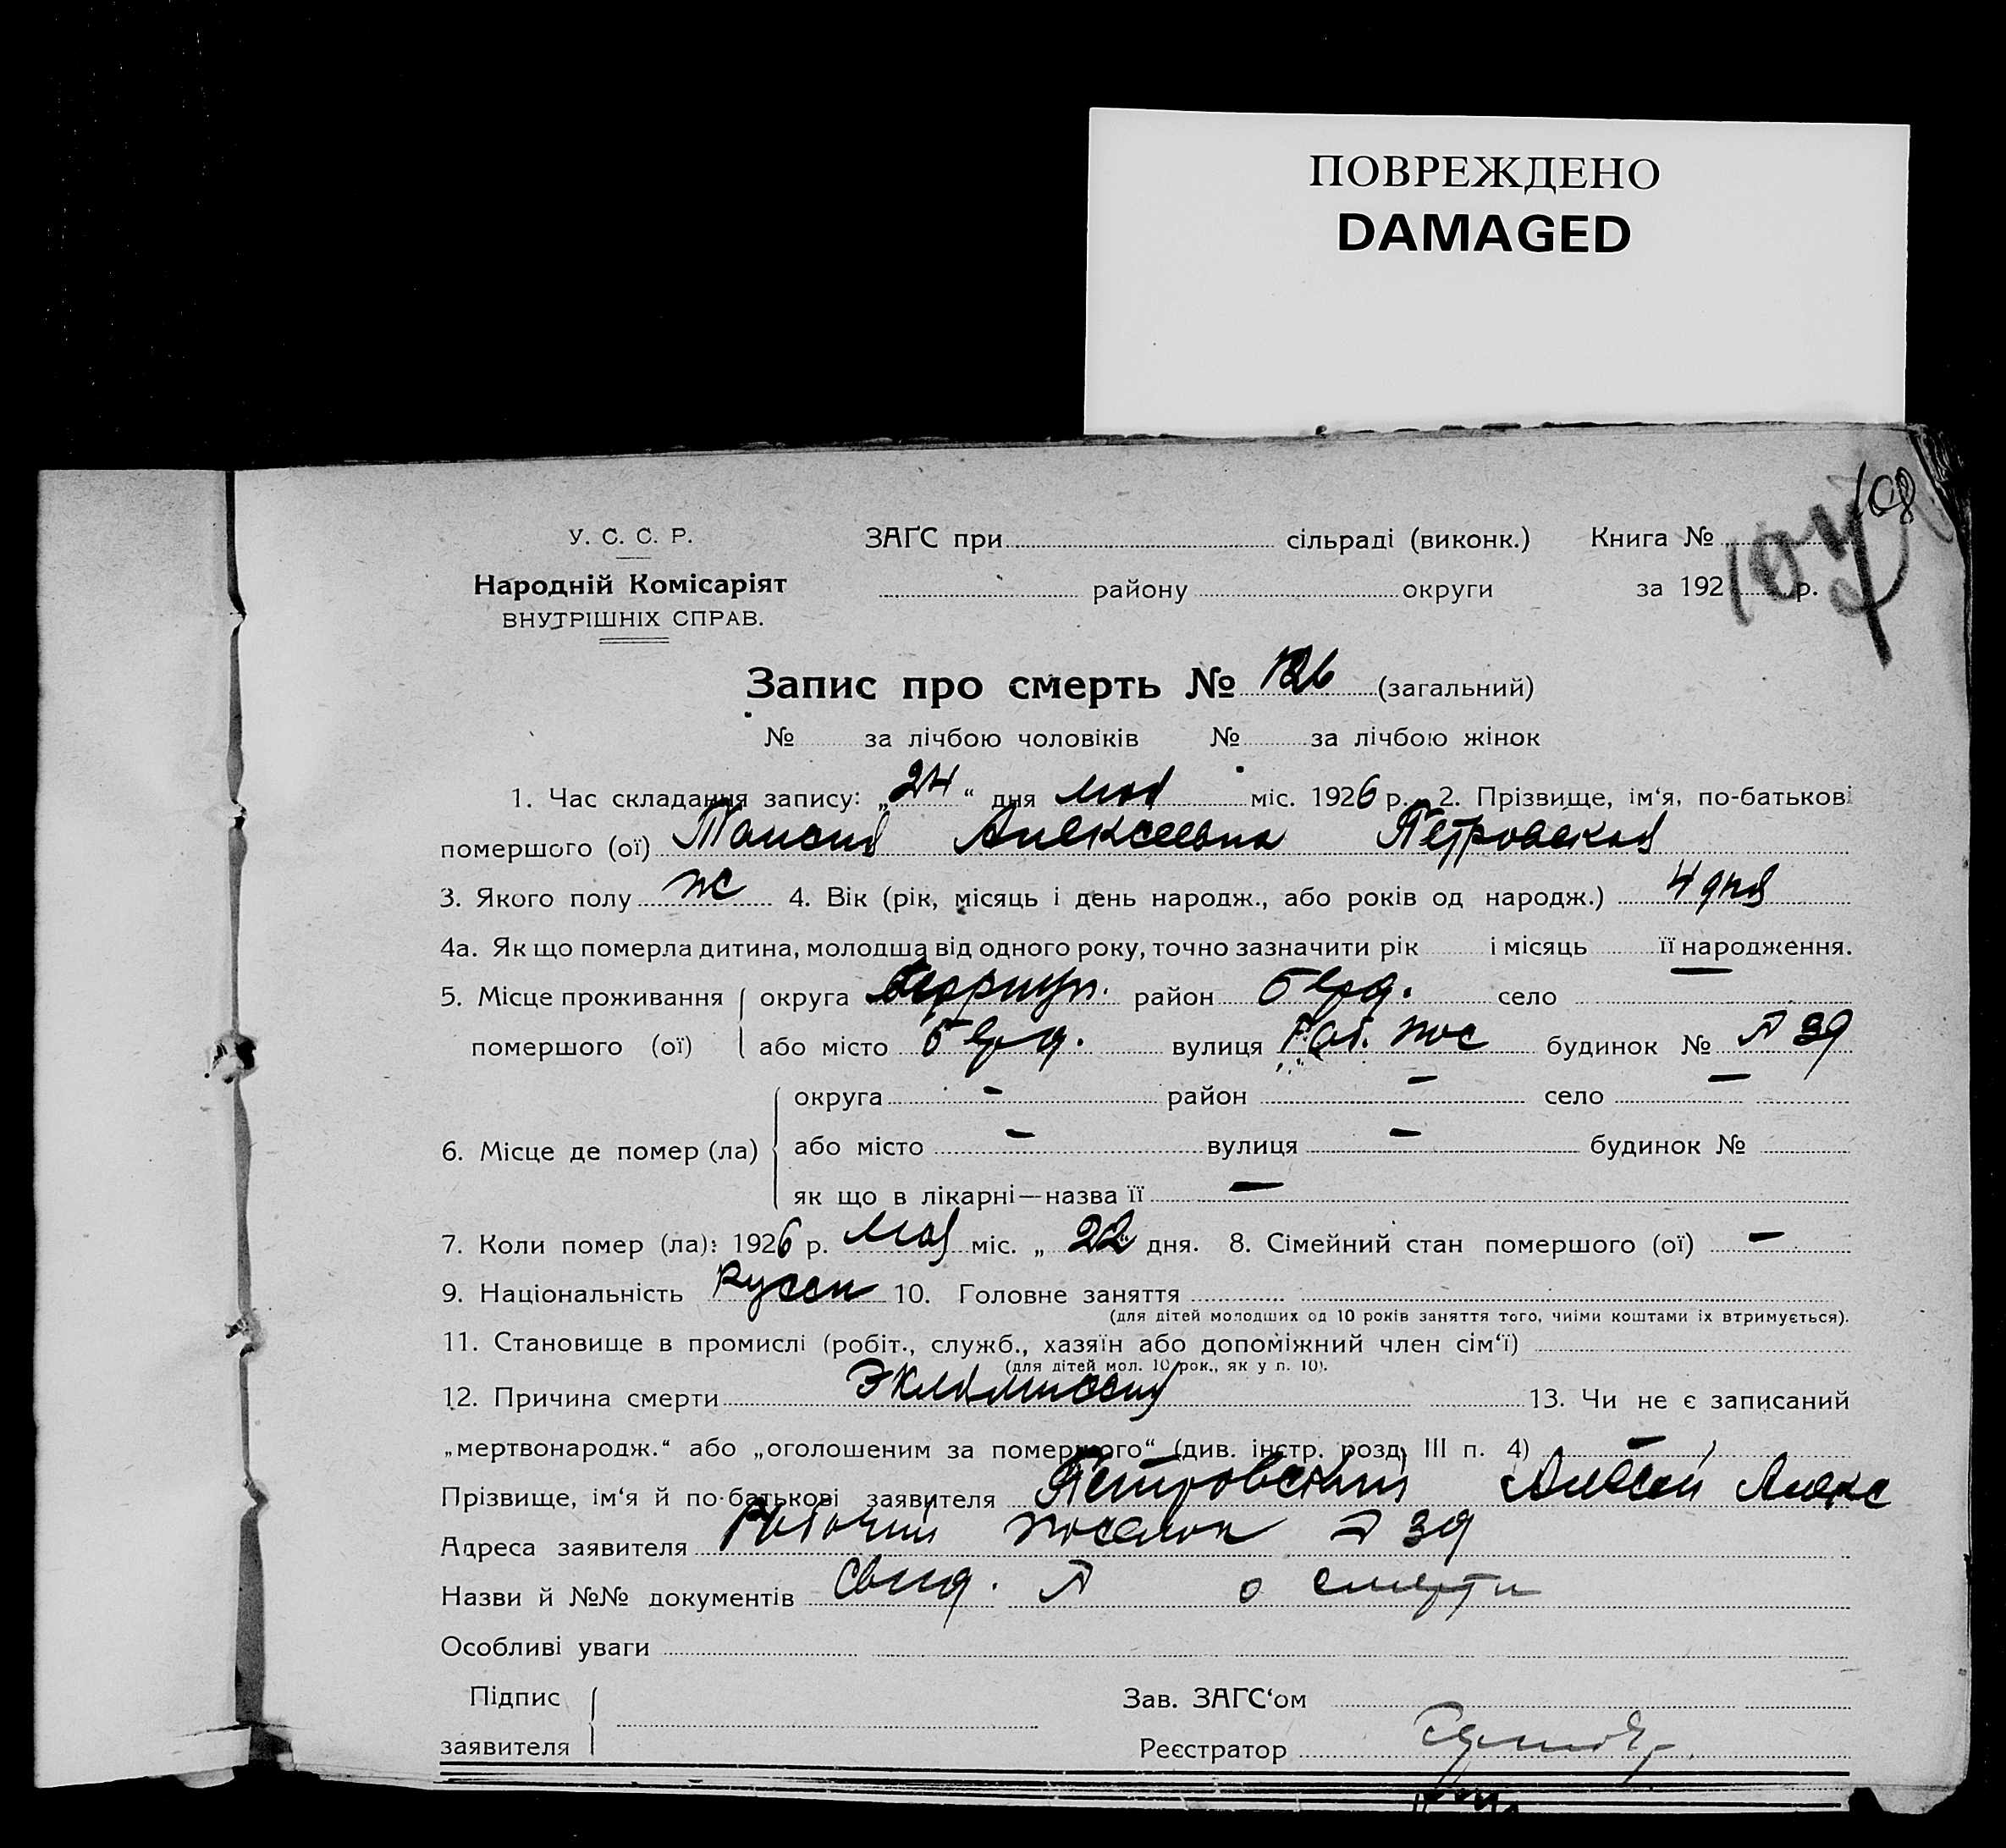 ПОВРЕЖДЕНО
DAMAGED
108
104
У. С. С. Р.
Народній Комісаріят
ВНУТРІШНІХ СПРАВ.
ЗАГС при сільраді (виконк.) Книга №
району округи за 192 р.
Запис про смерть № 126 (загальний)
№ за лічбою чоловіків № за лічбою жінок
1. Час складання запису: „24“ дня мая міс. 1926 р. 2. Прізвище, ім‘я, по-батькові
помершого (ої) Таисия Алексеевна Петровская
3. Якого полу ж 4. Вік (рік, місяць і день народж., або років од народж.) 4 дня
4а. Як що померла дитина, молодша від одного року, точно зазначити рік і місяць її народження.
5. Місце проживання округа район Берд. село —
помершого (ої) або місто Берд. вулиця Раб. пос будинок № 39
округа — район — село —
6. Місце де помер (ла) або місто — вулиця — будинок №
як що в лікарні—назва її —
7. Коли помер (ла): 1926 р. мая міс. „ 22 дня. 8. Сімейний стан помершого (ої) —
9. Національність Русск 10. Головне заняття
(для дітей молодших од 10 років заняття того, чиїми коштами їх втримується).
11. Становище в промислі (робіт., служб., хазяїн або допоміжний член сім‘ї)
(для дітей мол. 10 рок., як у п. 10).
12. Причина смерти Эклампсия 13. Чи не є записаний
„мертвонародж.“ або „оголошеним за помершого“ (див. інстр. розд. III п. 4) —
Прізвище, ім‘я й по-батькові заявителя Петровский Алексей Алекс
Адреса заявителя Рабочий поселок № 39
Назви й №№ документів Свид. № о смерти
Особливі уваги
Підпис
заявителя
Зав. ЗАГС‘ом
Реєстратор